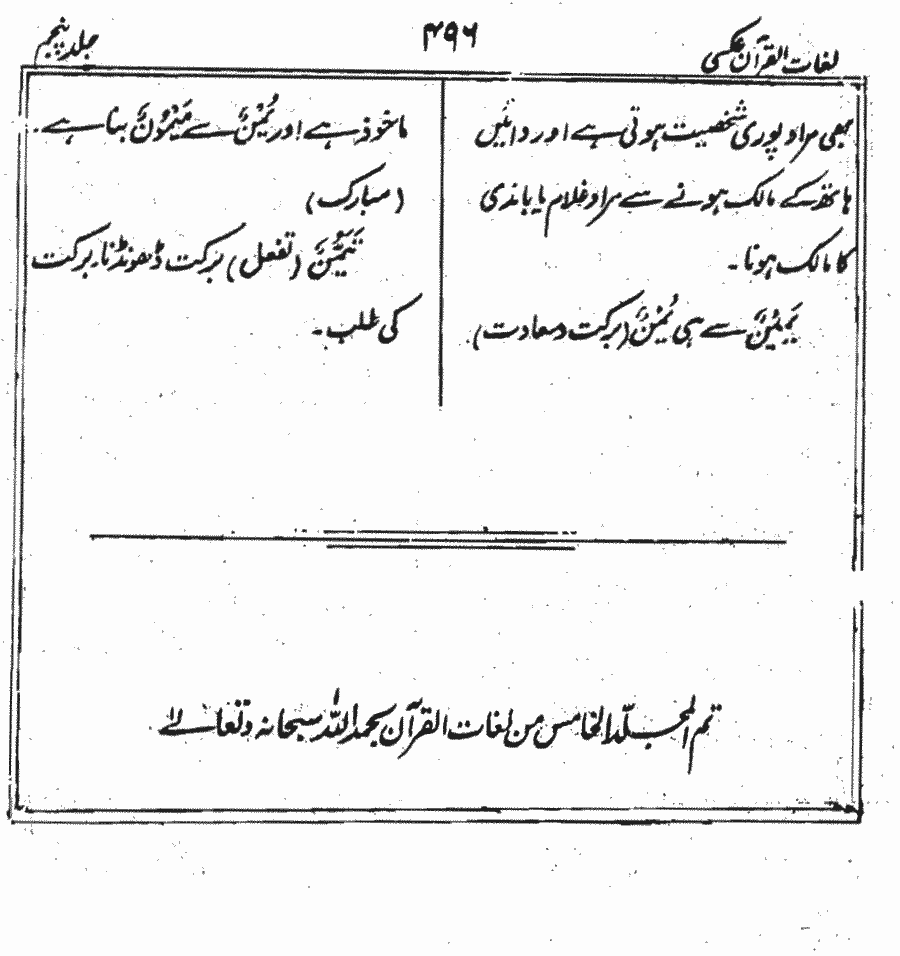 لغات القرآن عکسی
۴۹۶
جلد پنجم
بھی مراد پوری شخصیت ہوتی ہے اور دائیں
ہاتھ کے مالک ہونے سے مراد غلام یا باندی
کا مالک ہونا۔
یَمِیْنٌ سے ہی یُمْنٌ (برکت و سعادت)
ماخوذ ہے اور یُمْنٌ سے مَیْمُوْنٌ بنا ہے۔
(مبارک)
تَیَمُّنٌ (تفعل) برکت ڈھونڈنا۔ برکت
کی طلب۔
تم المجلّد الخامس من لغات القرآن بحمد اللہ سبحانہ وتعالےٰ